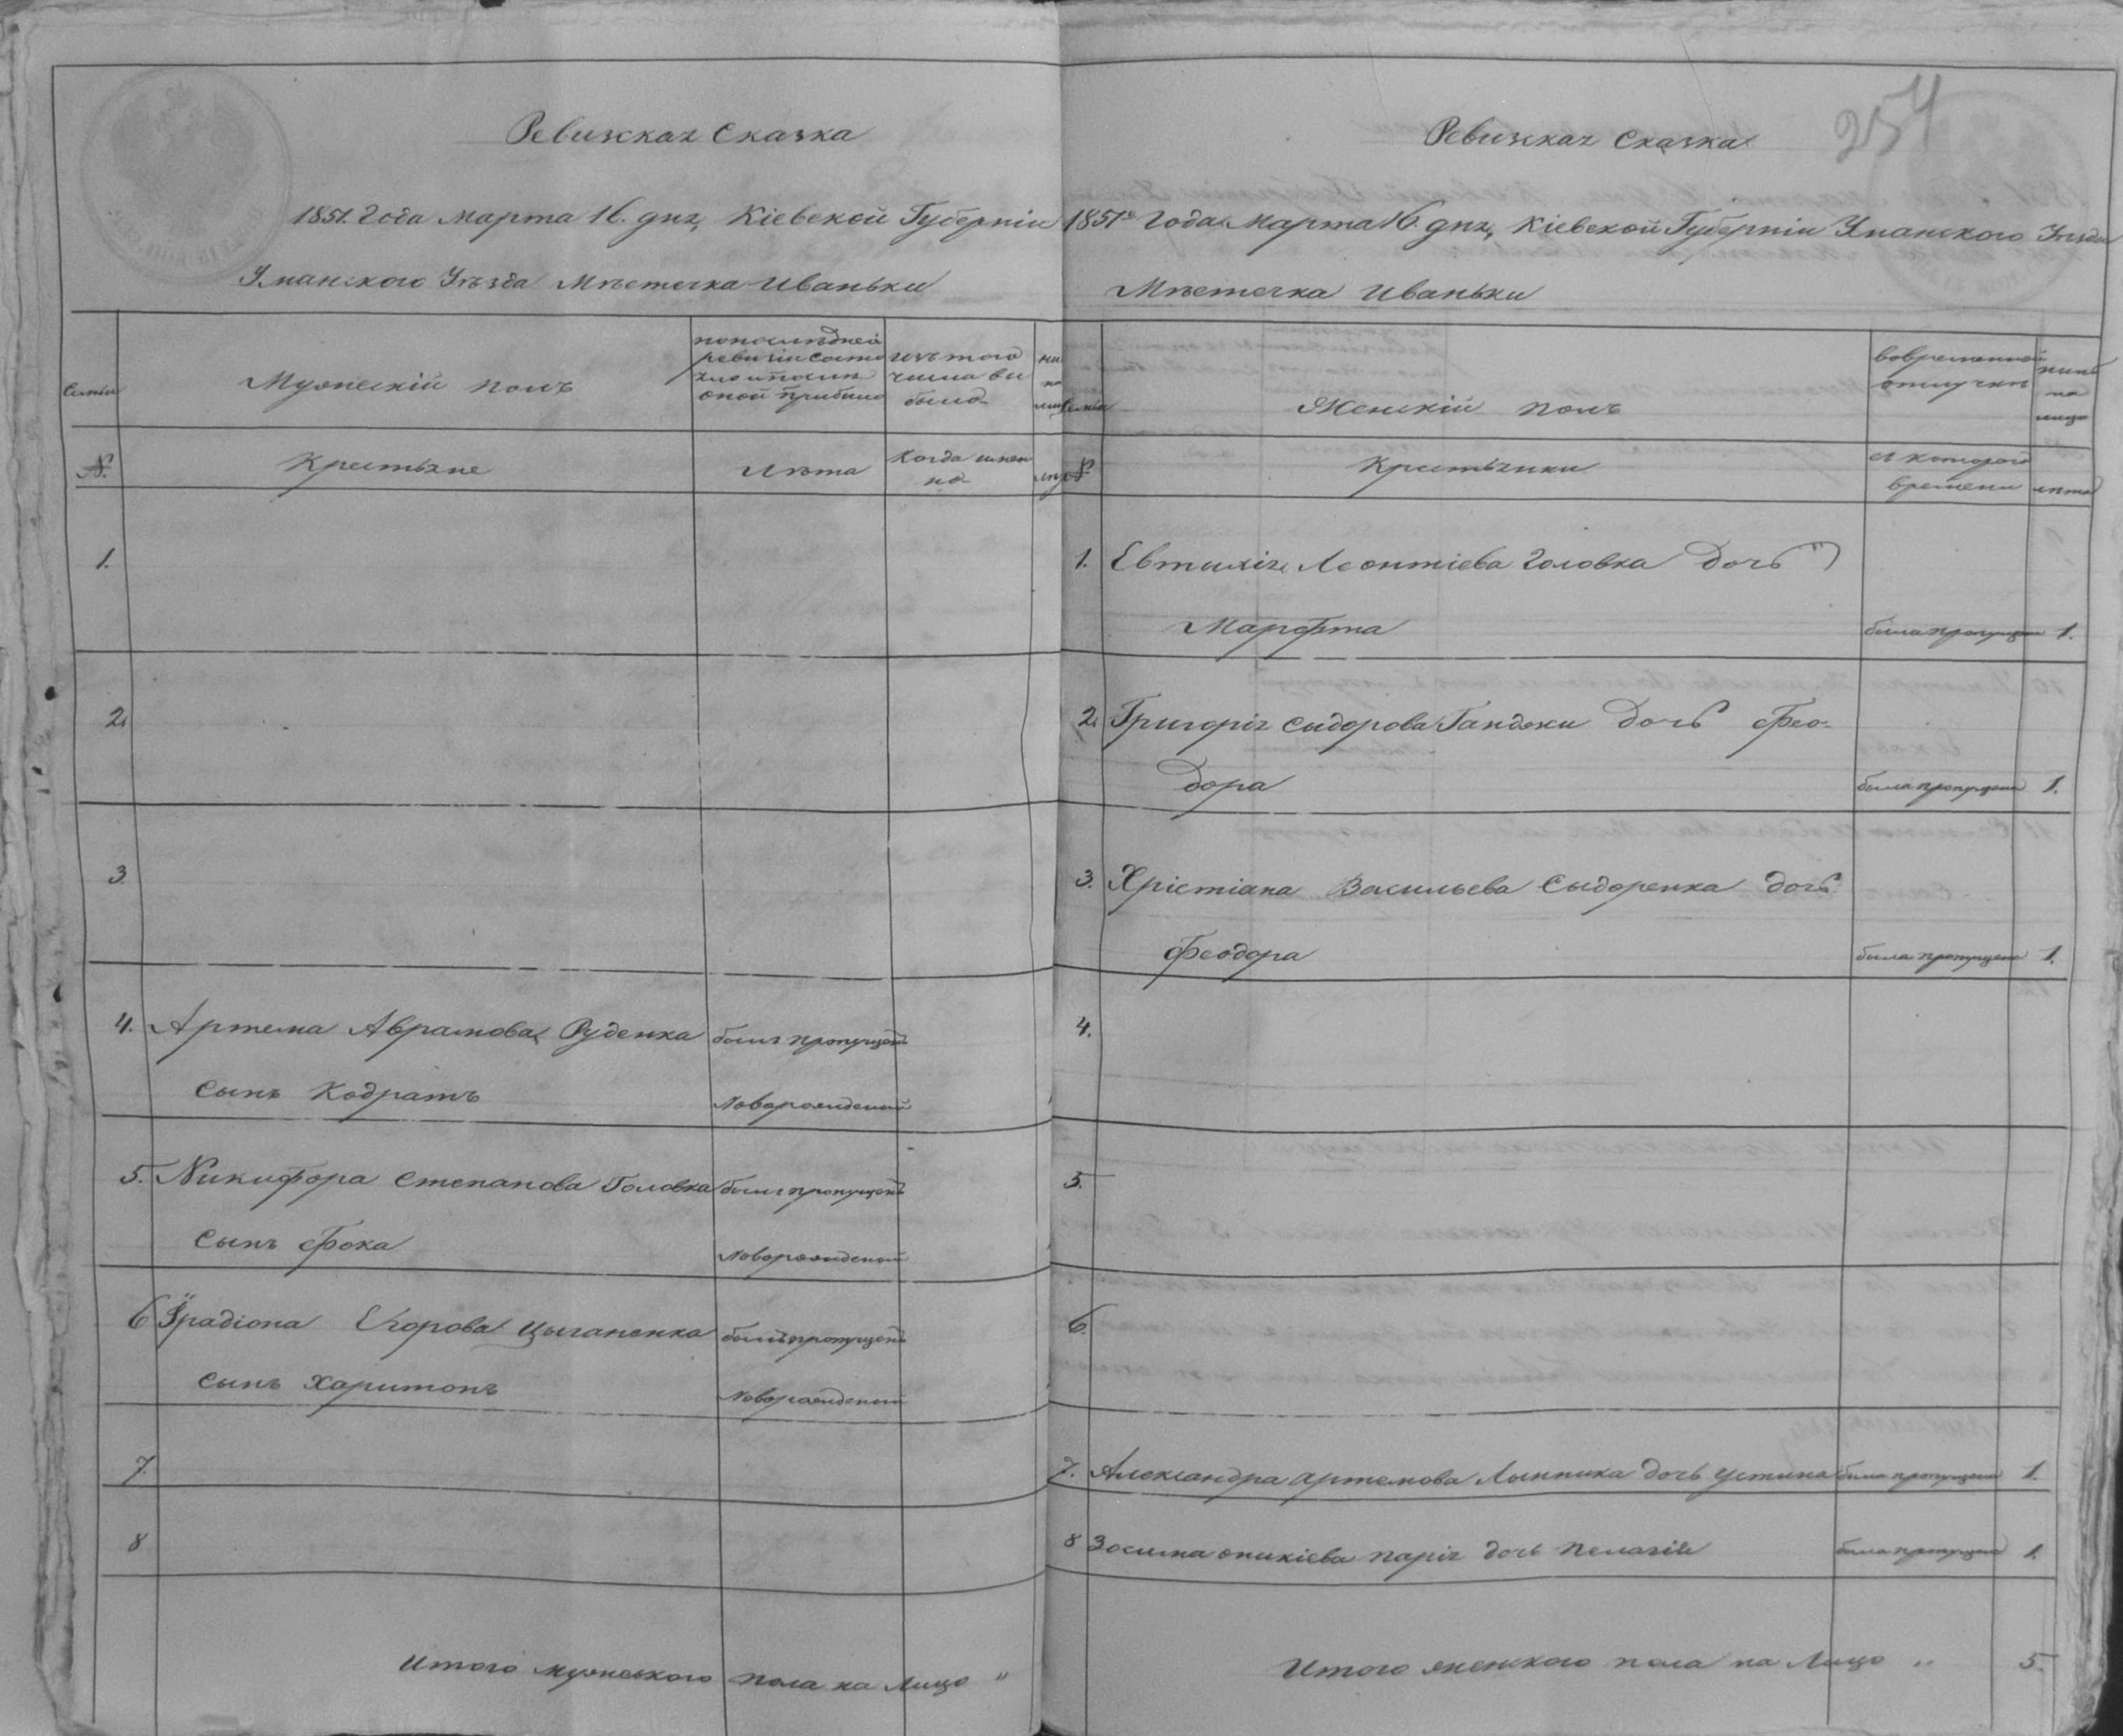 Ревизская Сказка
1851. Года Марта 16. дня, Кіевской Губерніи
Уманского Уѣзда Мѣстечка Иваньки
Семьи
Мужескій полъ
по послѣдней
ревизіи состо
яло и послѣ
оной прибыло
изъ того
числа вы
было
ны
на
лиц
№.
Крестьяне
Лѣта
Когда имен
но
лѣт
1.
2.
3.
4. Артема Аврамова Руденка былъ пропущенъ
сынъ Кодратъ Новорожденый
5. Никифора Степанова Головка былъ пропущенъ
Сынъ Фока Новорожденый
6 Ирадіона Егорова Цыганенка былъ пропущенъ
Сынъ Харитонъ Новорожденый
7.
8
Итого мужеського пола на Лицо "
254
Ревизская Сказка
1851го Года Марта 16. дня, Кіевской Губерніи Уманского Уѣзда
Мѣстечка Иваньки
Семьи
Женскій полъ
во временной
отлучкѣ
нынѣ
на
лицо
№
Крестьянки
съ которого
времени
лѣта
1. Евтихія Леонтіева Головка дочь
Марфта была пропущена 1.
2. Григорія Сыдорова Ганджи дочь Фео-
дора была пропущена 1.
3. Хрістіана Васильева Сыдоренка дочь
Феодора была пропущена 1.
4.
5.
6.
7. Александра Артемова Лынника дочь Устина была пропущена 1.
8 Зосима Оникіева Парія дочь Пелагія была пропущена 1.
Итого женского пола на Лицо " 5.